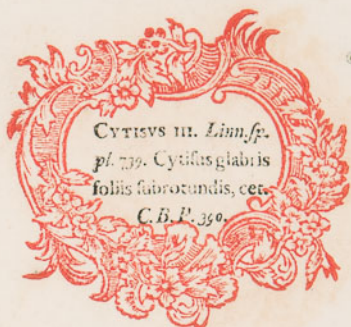 CYTISVS III. Linn.sp.
pl. 739. Cytisus glabris
foliis subrotundis, cet.
C. B. P. 390.